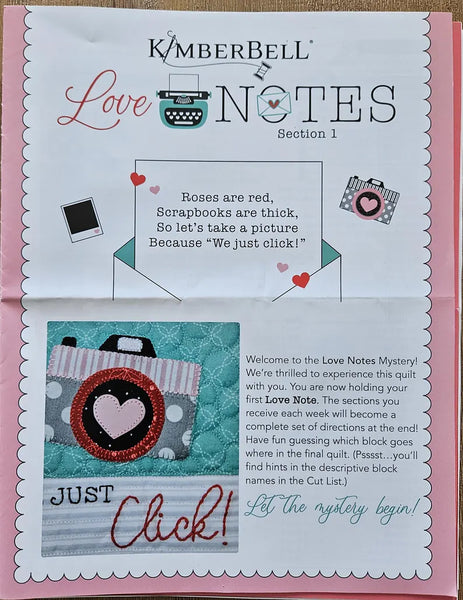 KIMBERBELL®
Love NOTES
Section 1
Roses are red,
Scrapbooks are thick,
So let's take a picture
Because "We just click!"
JUST
Click!
Welcome to the Love Notes Mystery!
We're thrilled to experience this quilt
with you. You are now holding your
first Love Note. The sections you
receive each week will become a
complete set of directions at the end!
Have fun guessing which block goes
where in the final quilt. (Psssst...you'll
find hints in the descriptive block
names in the Cut List.)
Let the mystery begin!